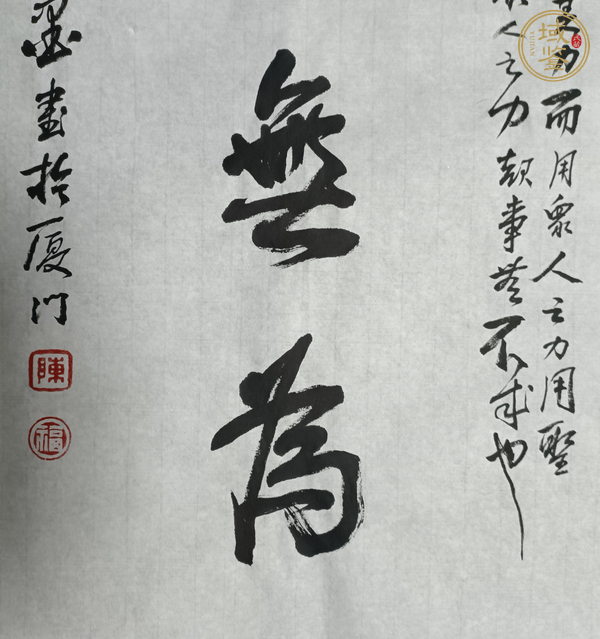 力而用衆人之力用聖
人之力事無不成也
無為
墨書於厦门
陳
福
域鉴
YUJIAN